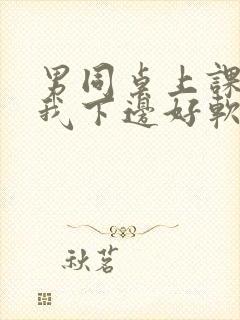 男同桌上課
我下邊好軟
秋茗